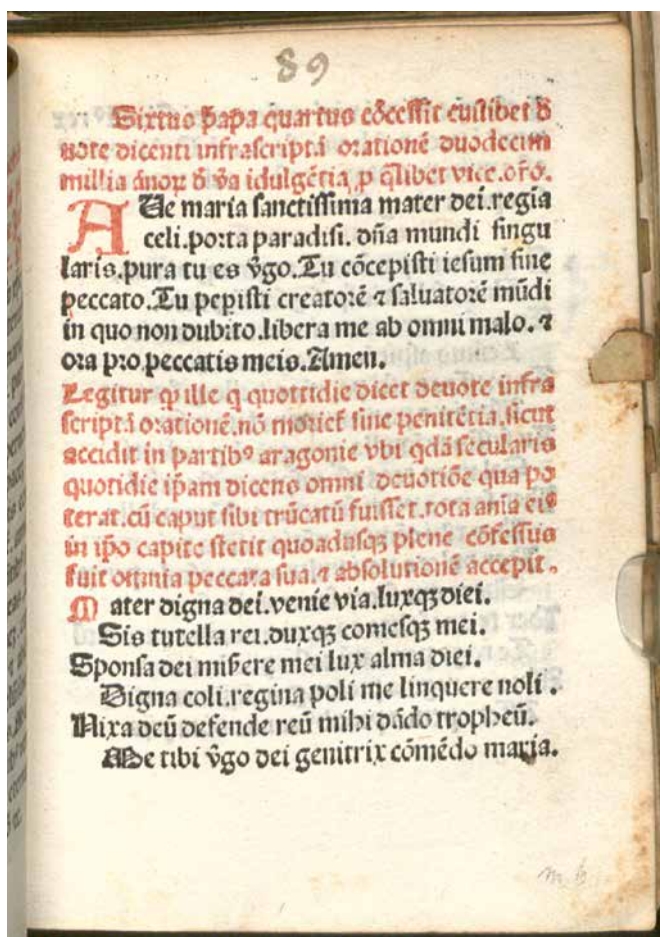 89
Sixtus papa quartus cōcessit cuilibet d̄
uote dicenti infrascriptā orationē duodecim
millia ānoꝝ d̄ v̄a idulgētia ꝓ q̄libet vice. orō.
AVe maria sanctissima mater dei. regia
celi. porta paradisi. dn̄a mundi singu
laris. pura tu es v̄go. Tu cōcepisti iesum sine
peccato. Tu peperisti creatorē ⁊ saluatorē mūdi
in quo non dubito. libera me ab omni malo. ⁊
ora pro peccatis meis. Amen.
Legitur ꝙ ille q quottidie dicet deuote infra
scriptā orationē. nō morieť sine penitētia. sicut
accidit in partibꝰ aragonie vbi qdā secularis
quotidie ip̄am dicens omni deuotiōe qua po
terat. cū caput sibi trūcatū fuisset. tota aīa eiꝰ
in ip̄o capite stetit quoadusqꝫ plene cōfessus
fuit omnia peccata sua. ⁊ absolutionē accepit.
Mater digna dei. venie via. luxqꝫ diei.
Sis tutella rei. duxqꝫ comesqꝫ mei.
Sponsa dei miẜere mei lux alma diei.
Digna coli. regina poli me linquere noli.
Nixa deū defende reū mihi dādo tropheū.
Me tibi v̄go dei genitrix cōmēdo maria.